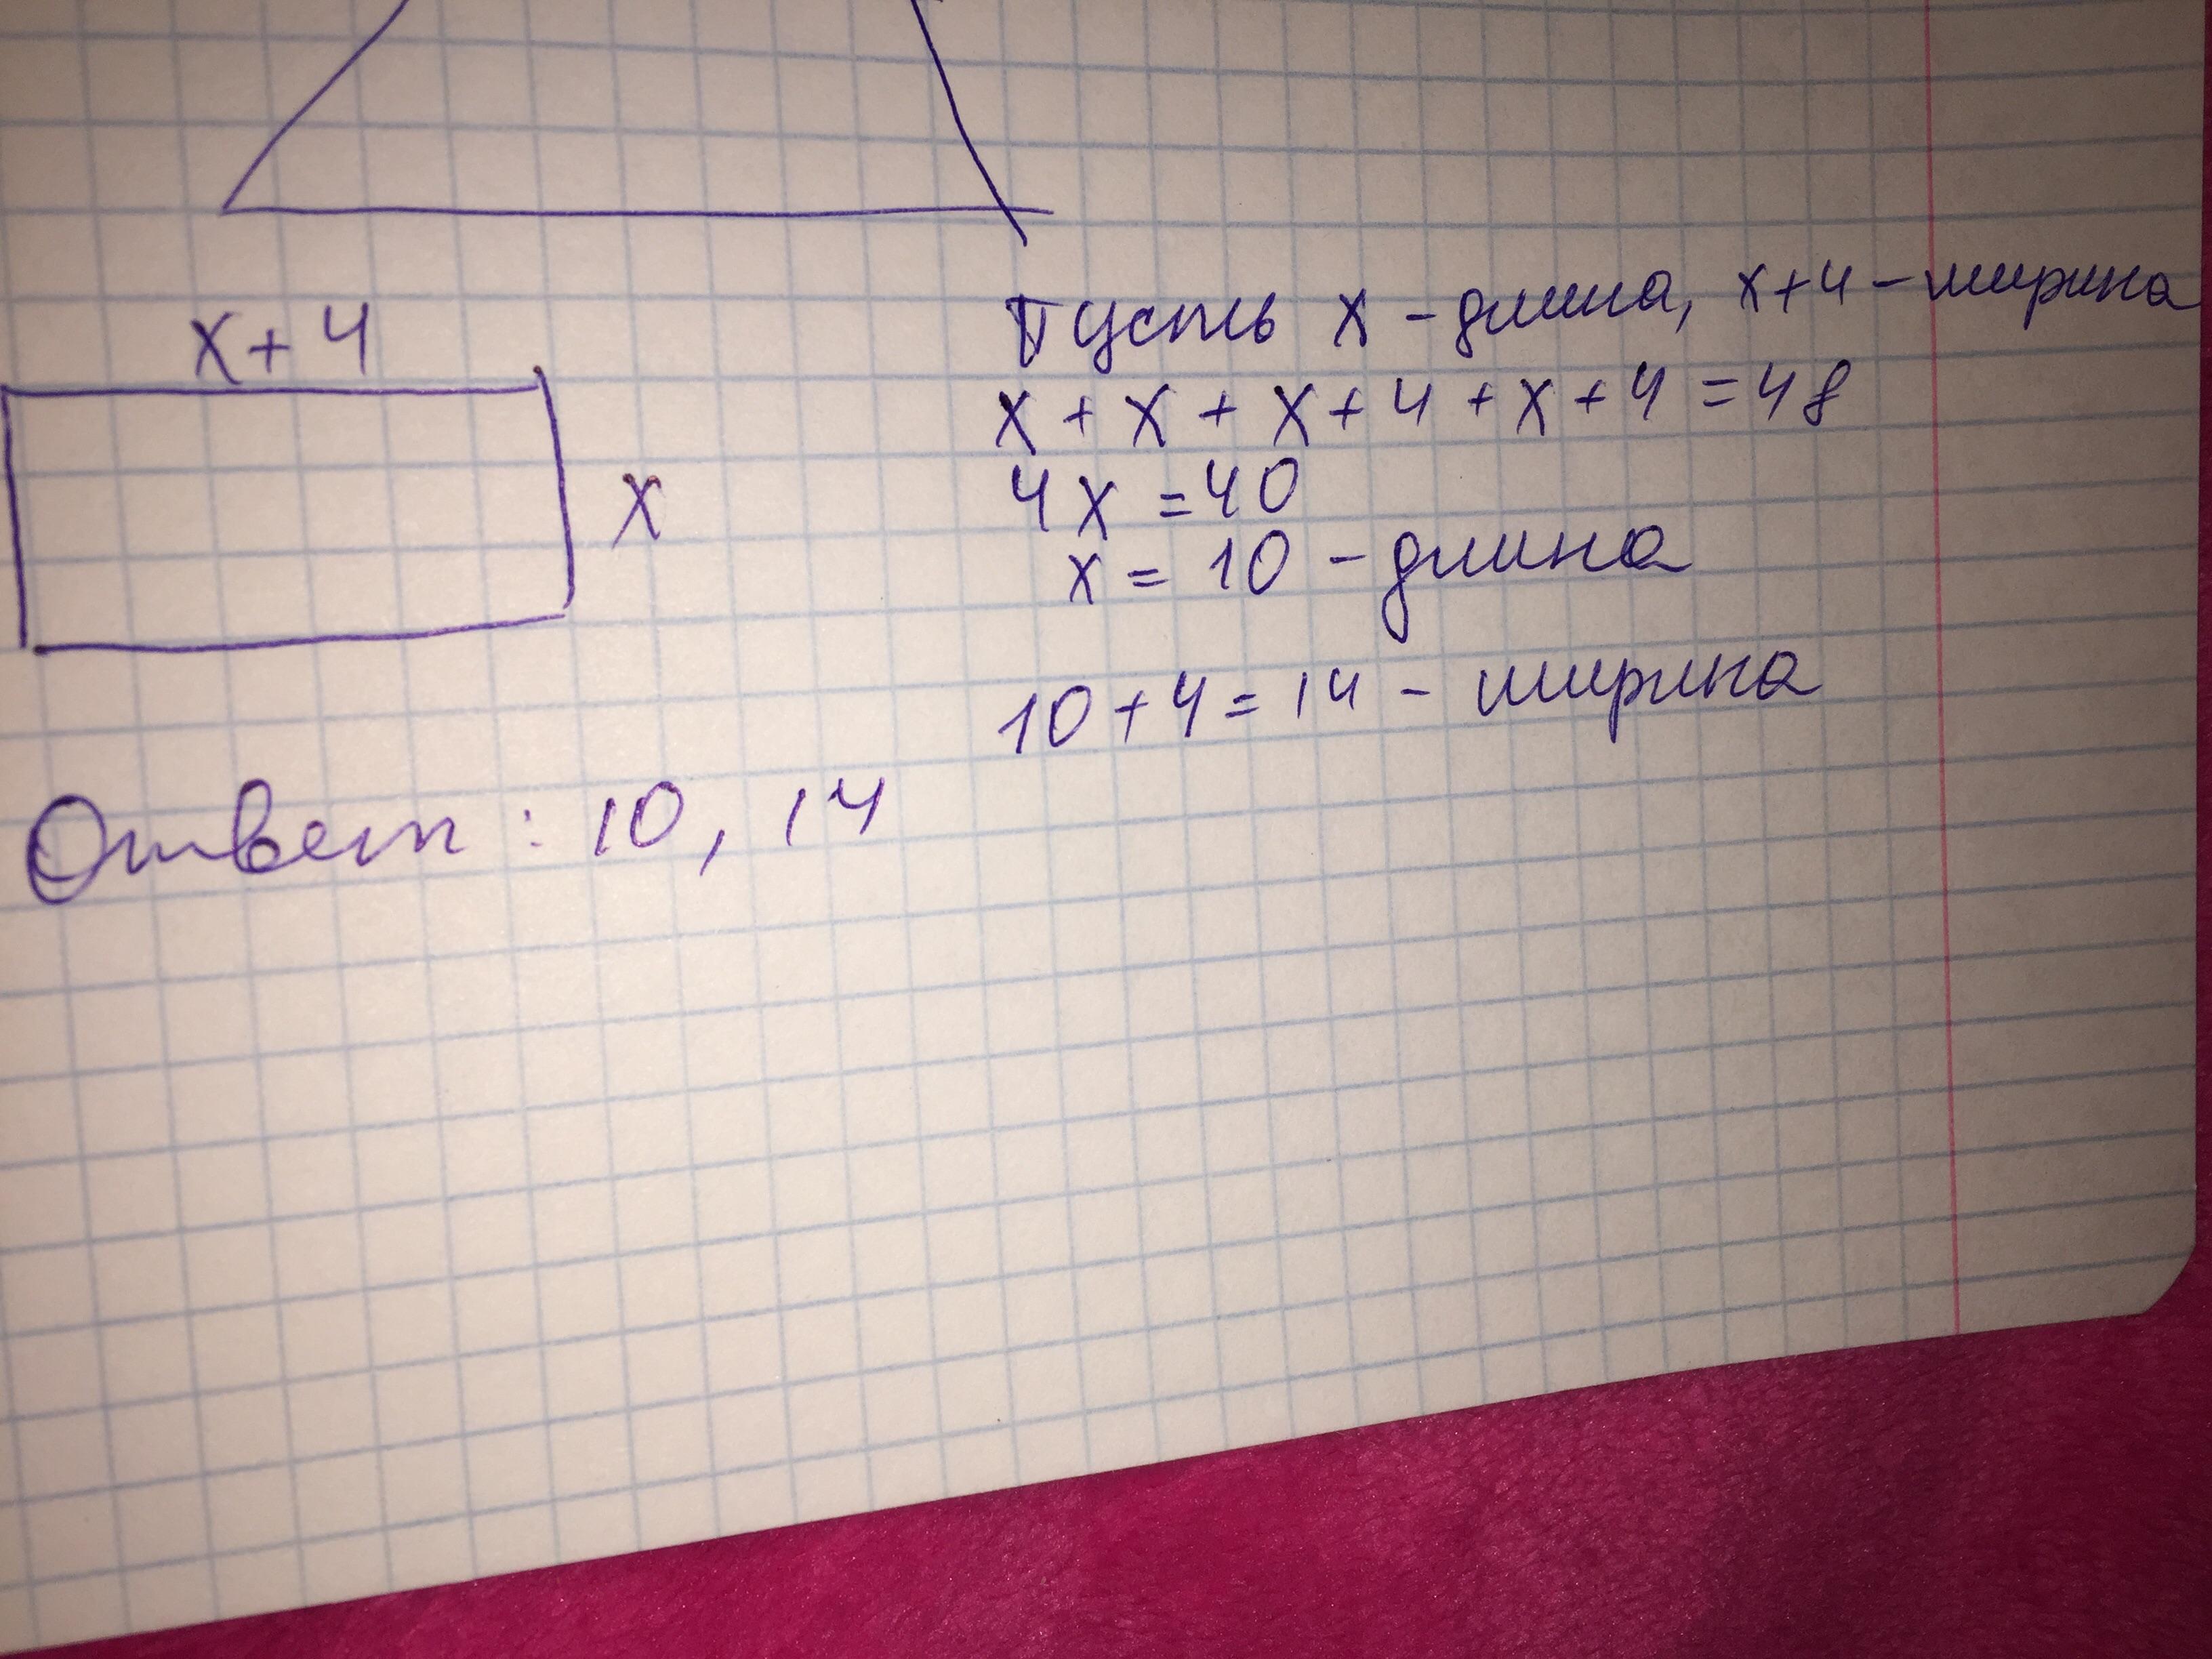 Пусть x - длина, x+4 - ширина
x+4
x + x + x + 4 + x + 4 = 48
4x = 40
x
x = 10 - длина
10 + 4 = 14 - ширина
Ответ : 10, 14